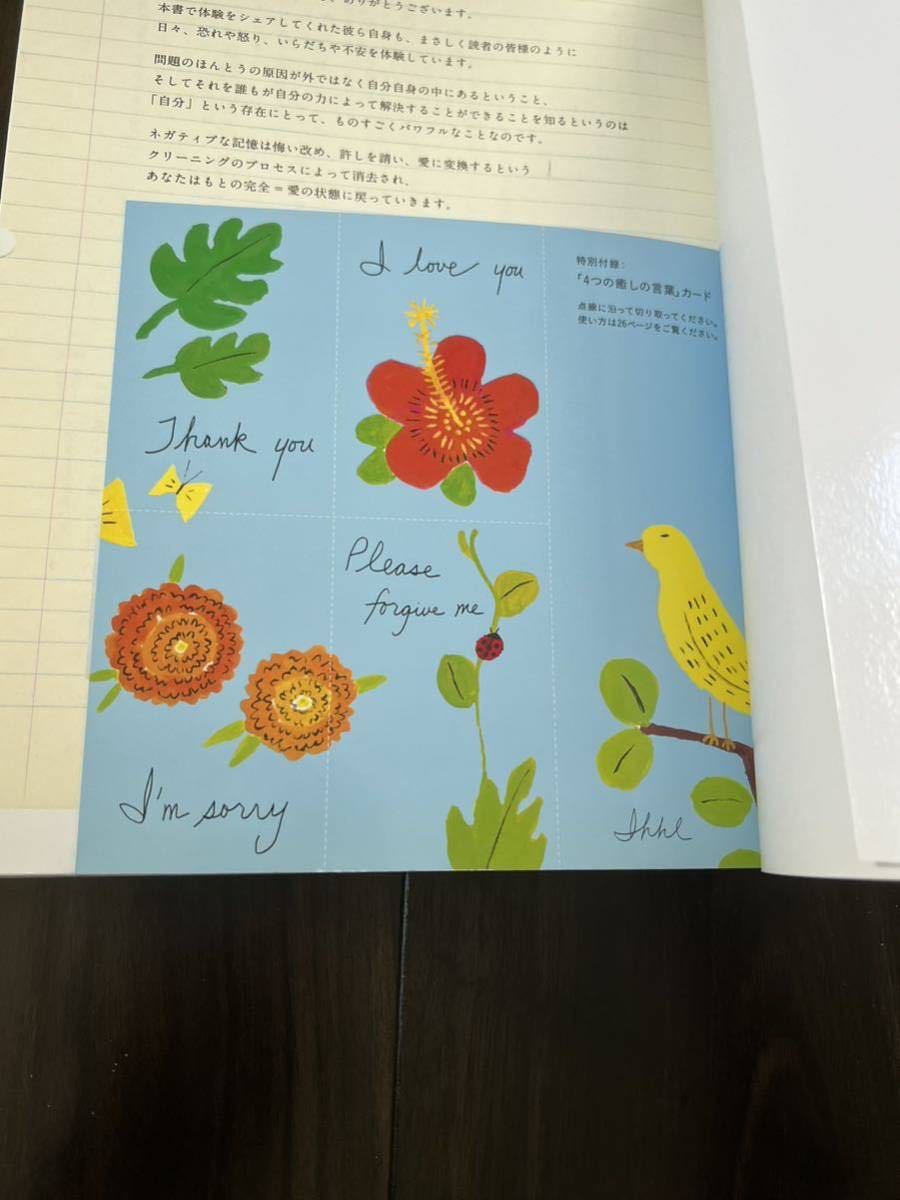 ありがとうございます。
本書で体験をシェアしてくれた彼ら自身も、まさしく読者の皆様のように
日々、恐れや怒り、いらだちや不安を体験しています。
問題のほんとうの原因が外ではなく自分自身の中にあるということ、
そしてそれを誰もが自分の力によって解決することができることを知るというのは
「自分」という存在にとって、ものすごくパワフルなことなのです。
ネガティブな記憶は悔い改め、許しを請い、愛に変換するという
クリーニングのプロセスによって消去され、
あなたはもとの完全＝愛の状態に戻っていきます。
I love you
特別付録：
「4つの癒しの言葉」カード
点線に沿って切り取ってください。
使い方は26ページをご覧ください。
Thank you
Please
forgive me
I'm sorry